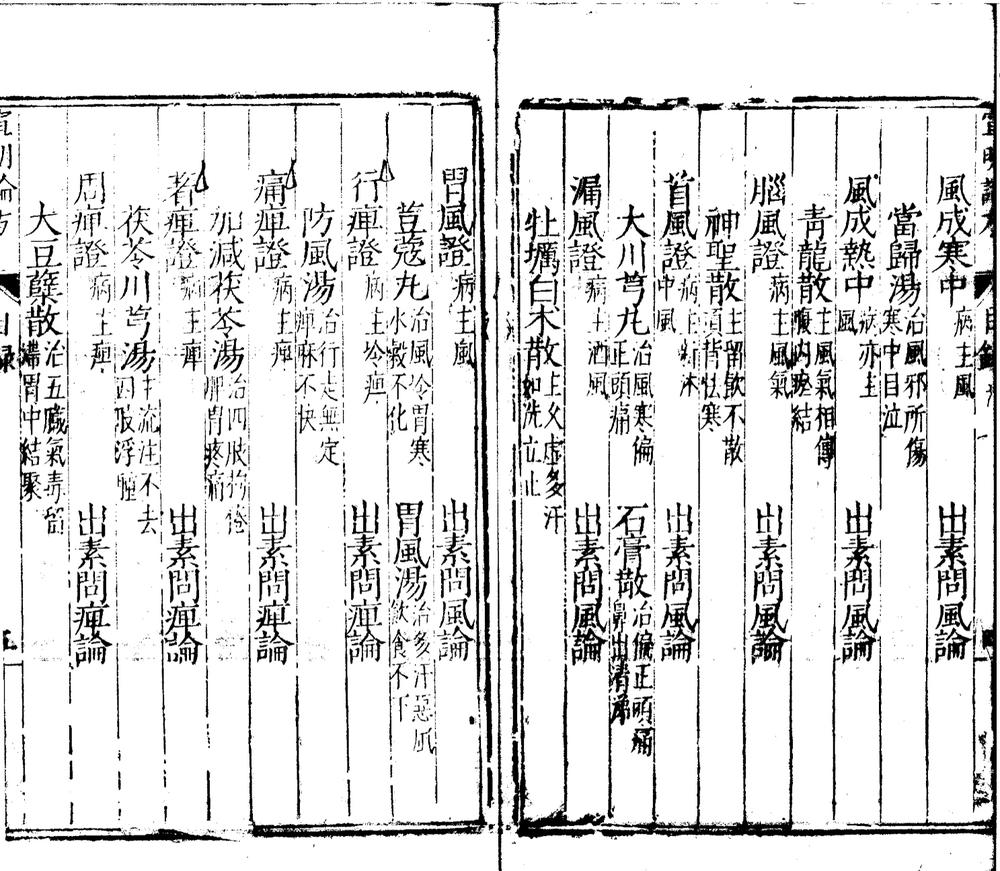 風成寒中病主風　出素問風論
當歸湯治風邪所傷寒中目泣
風成熱中病亦主風　出素問風論
青龍散主風氣相傳腹內瘀結
腦風證病主風氣　出素問風論
神聖散主留飲不散項背怯寒
首風證中風　出素問風論
大川芎丸治風寒偏正頭痛　石膏散治偏正頭痛鼻出清涕
漏風證病主酒風　出素問風論
牡蠣白朮散主久虛多汗如洗立止
宣明論方　目錄
胃風證病主風　出素問風論
荳蔻丸治風冷胃寒水穀不化　胃風湯治多汗惡風飲食不下
行痺證病主冷痺　出素問痺論
防風湯治行走無定痺麻不快
痛痺證病主痺　出素問痺論
加減茯苓湯治四肢拘倦脾胃疼痛
著痺證病主痺　出素問痺論
茯苓川芎湯主流注不去四肢浮腫
周痺證病主痺　出素問痺論
大豆蘗散治五臟氣毒留滯胃中結聚
宣明論方　目錄　五